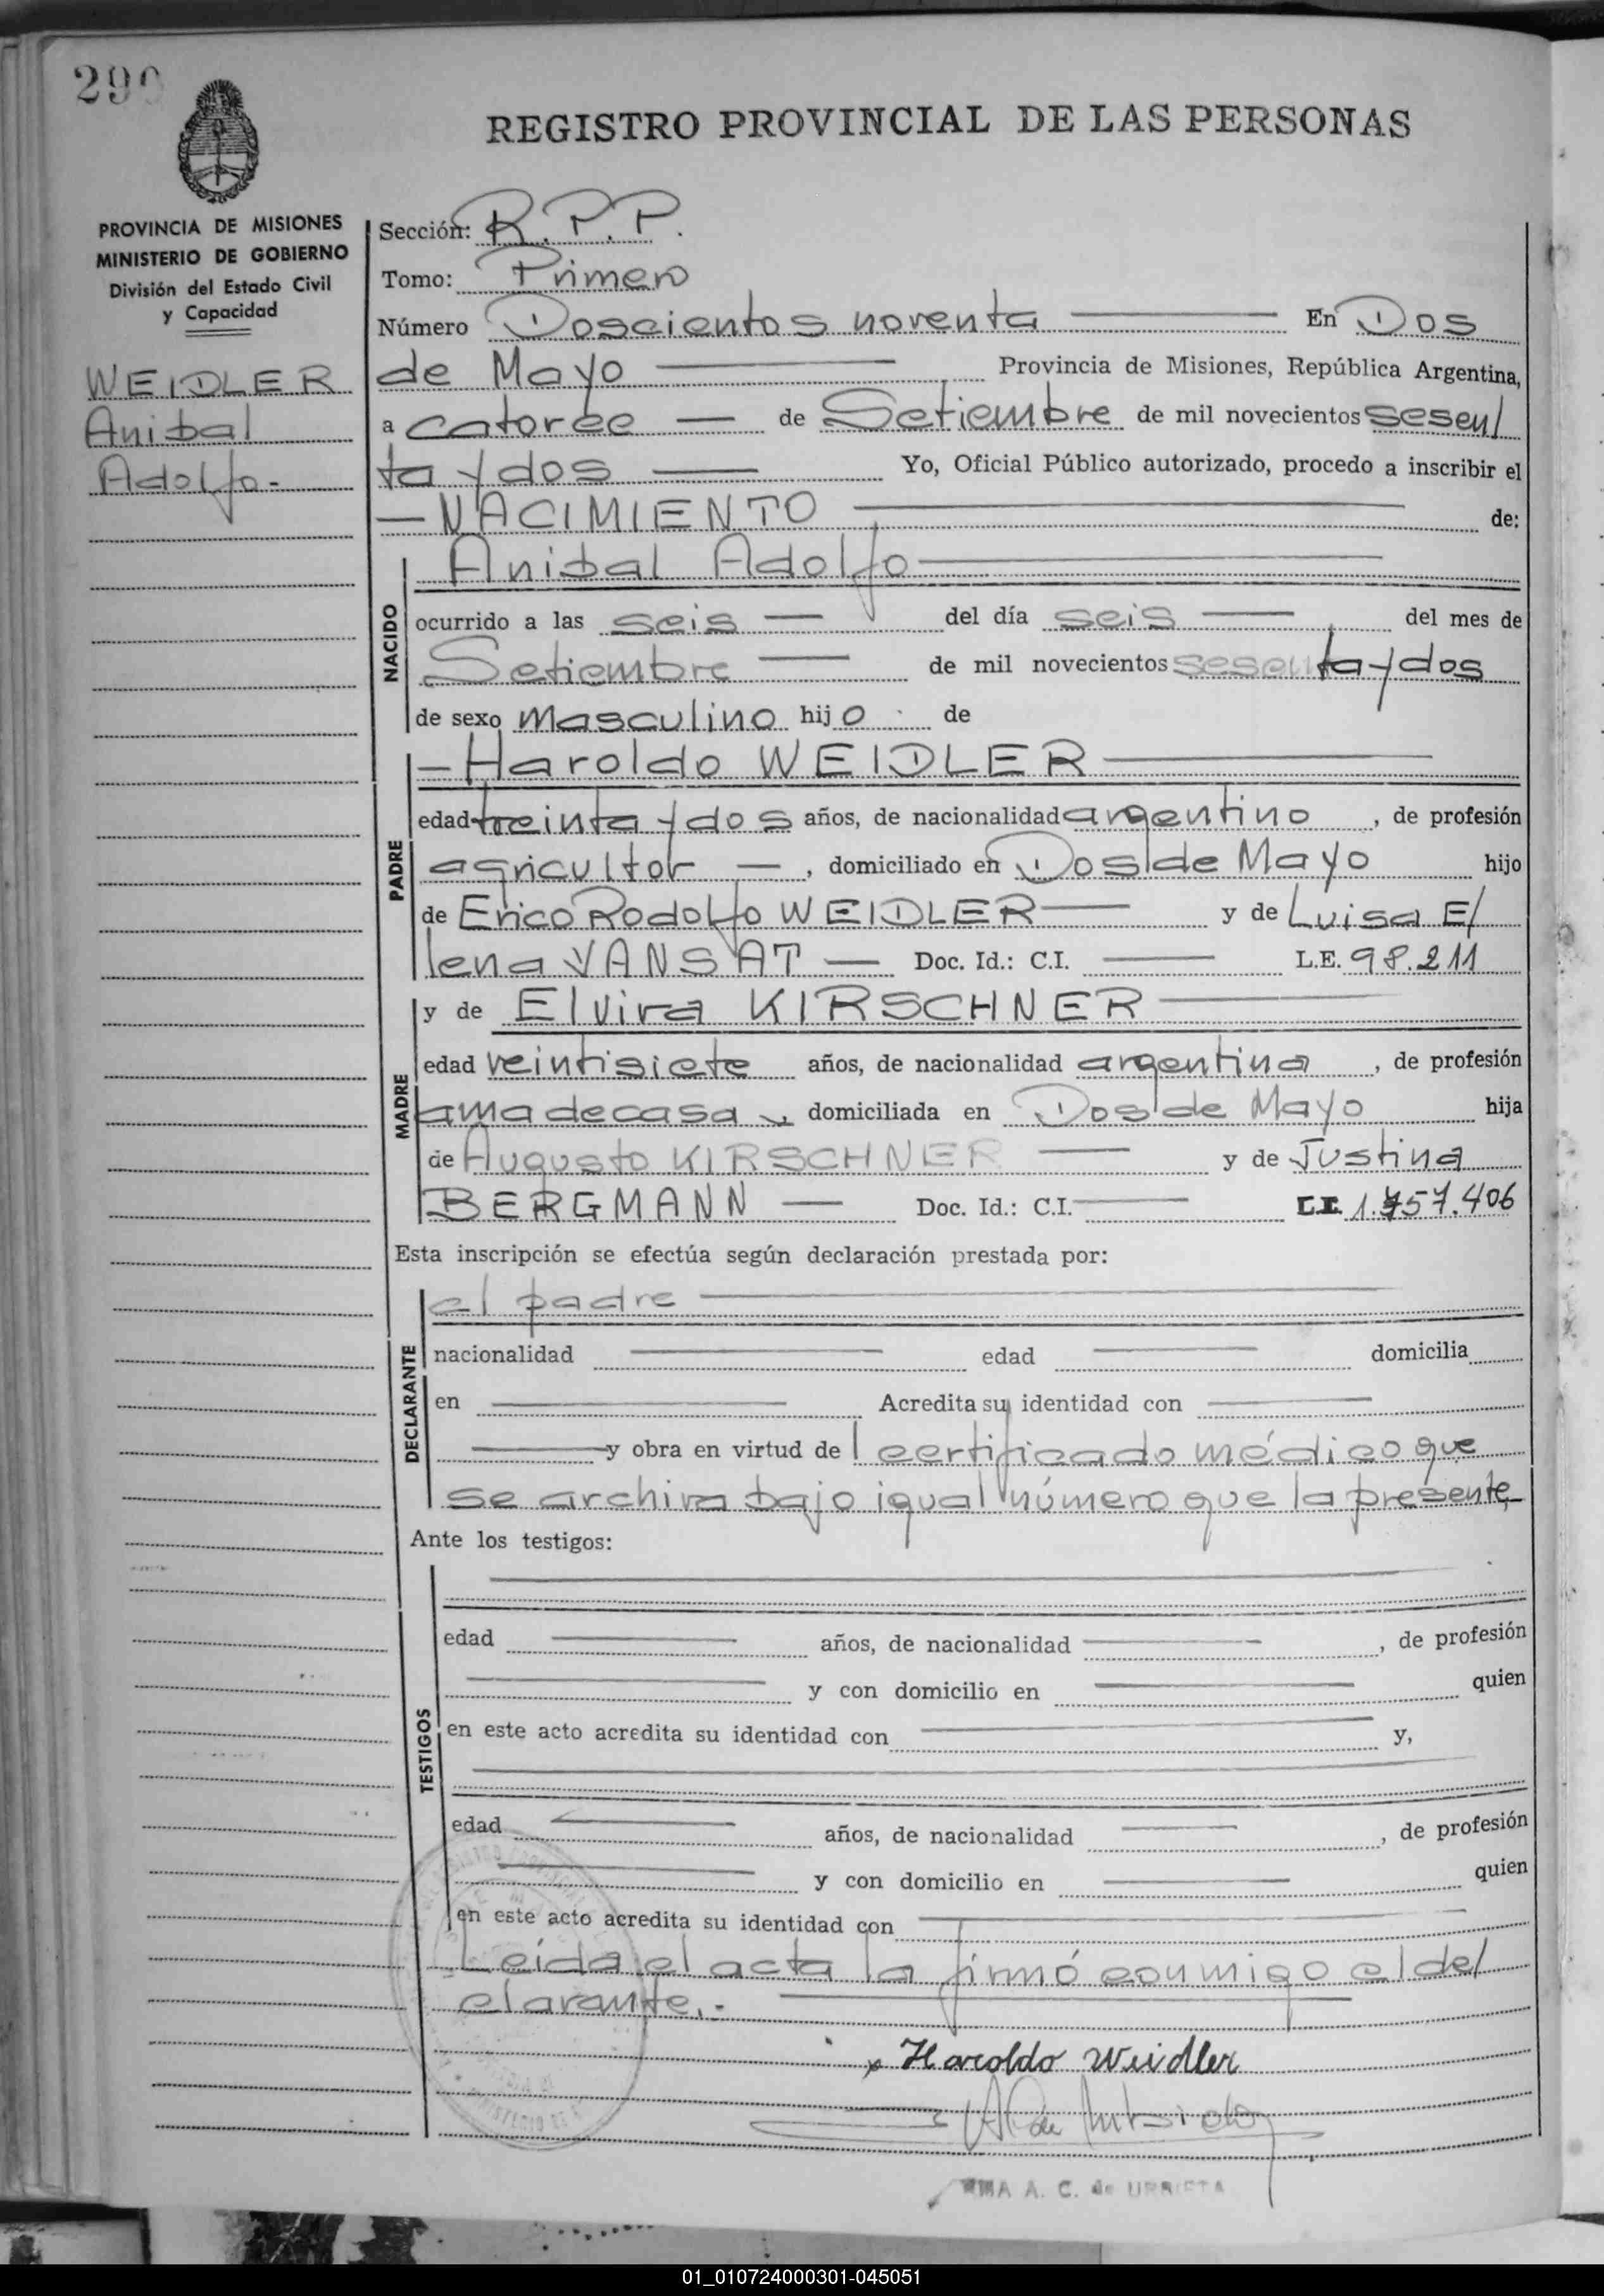 290
REGISTRO PROVINCIAL DE LAS PERSONAS
PROVINCIA DE MISIONES
MINISTERIO DE GOBIERNO
División del Estado Civil
y Capacidad
WEIDLER
Anibal
Adolfo.-
Sección: R.P.P.
Tomo: Primero
Número Doscientos noventa — En Dos
de Mayo — Provincia de Misiones, República Argentina,
a catorce — de Setiembre de mil novecientos sesen/
ta y dos — Yo, Oficial Público autorizado, procedo a inscribir el
— NACIMIENTO — de:
NACIDO
Anibal Adolfo —
ocurrido a las seis — del día seis — del mes de
Setiembre — de mil novecientos sesenta y dos
de sexo masculino hijo de
PADRE
— Haroldo WEIDLER —
edad treinta y dos años, de nacionalidad argentino, de profesión
agricultor —, domiciliado en Dos de Mayo hijo
de Erico Rodolfo WEIDLER — y de Luisa E/
lena VANSAT — Doc. Id.: C.I. — L.E. 98.211
MADRE
y de Elvira KIRSCHNER —
edad veintisiete años, de nacionalidad argentina, de profesión
ama de casa, domiciliada en Dos de Mayo hija
de Augusto KIRSCHNER — y de Justina
BERGMANN — Doc. Id.: C.I. — 1.757.406
Esta inscripción se efectúa según declaración prestada por:
DECLARANTE
el padre —
nacionalidad — edad — domicilia
en — Acredita su identidad con —
— y obra en virtud del certificado médico que
se archiva bajo igual número que la presente,
Ante los testigos:
TESTIGOS
edad — años, de nacionalidad —, de profesión
— y con domicilio en — quien
en este acto acredita su identidad con — y,
edad — años, de nacionalidad —, de profesión
— y con domicilio en — quien
en este acto acredita su identidad con —
Leída el acta la firmó conmigo el de/
clarante.-
x Haroldo Weidler
A. C. de URRIETA
01_010724000301-045051